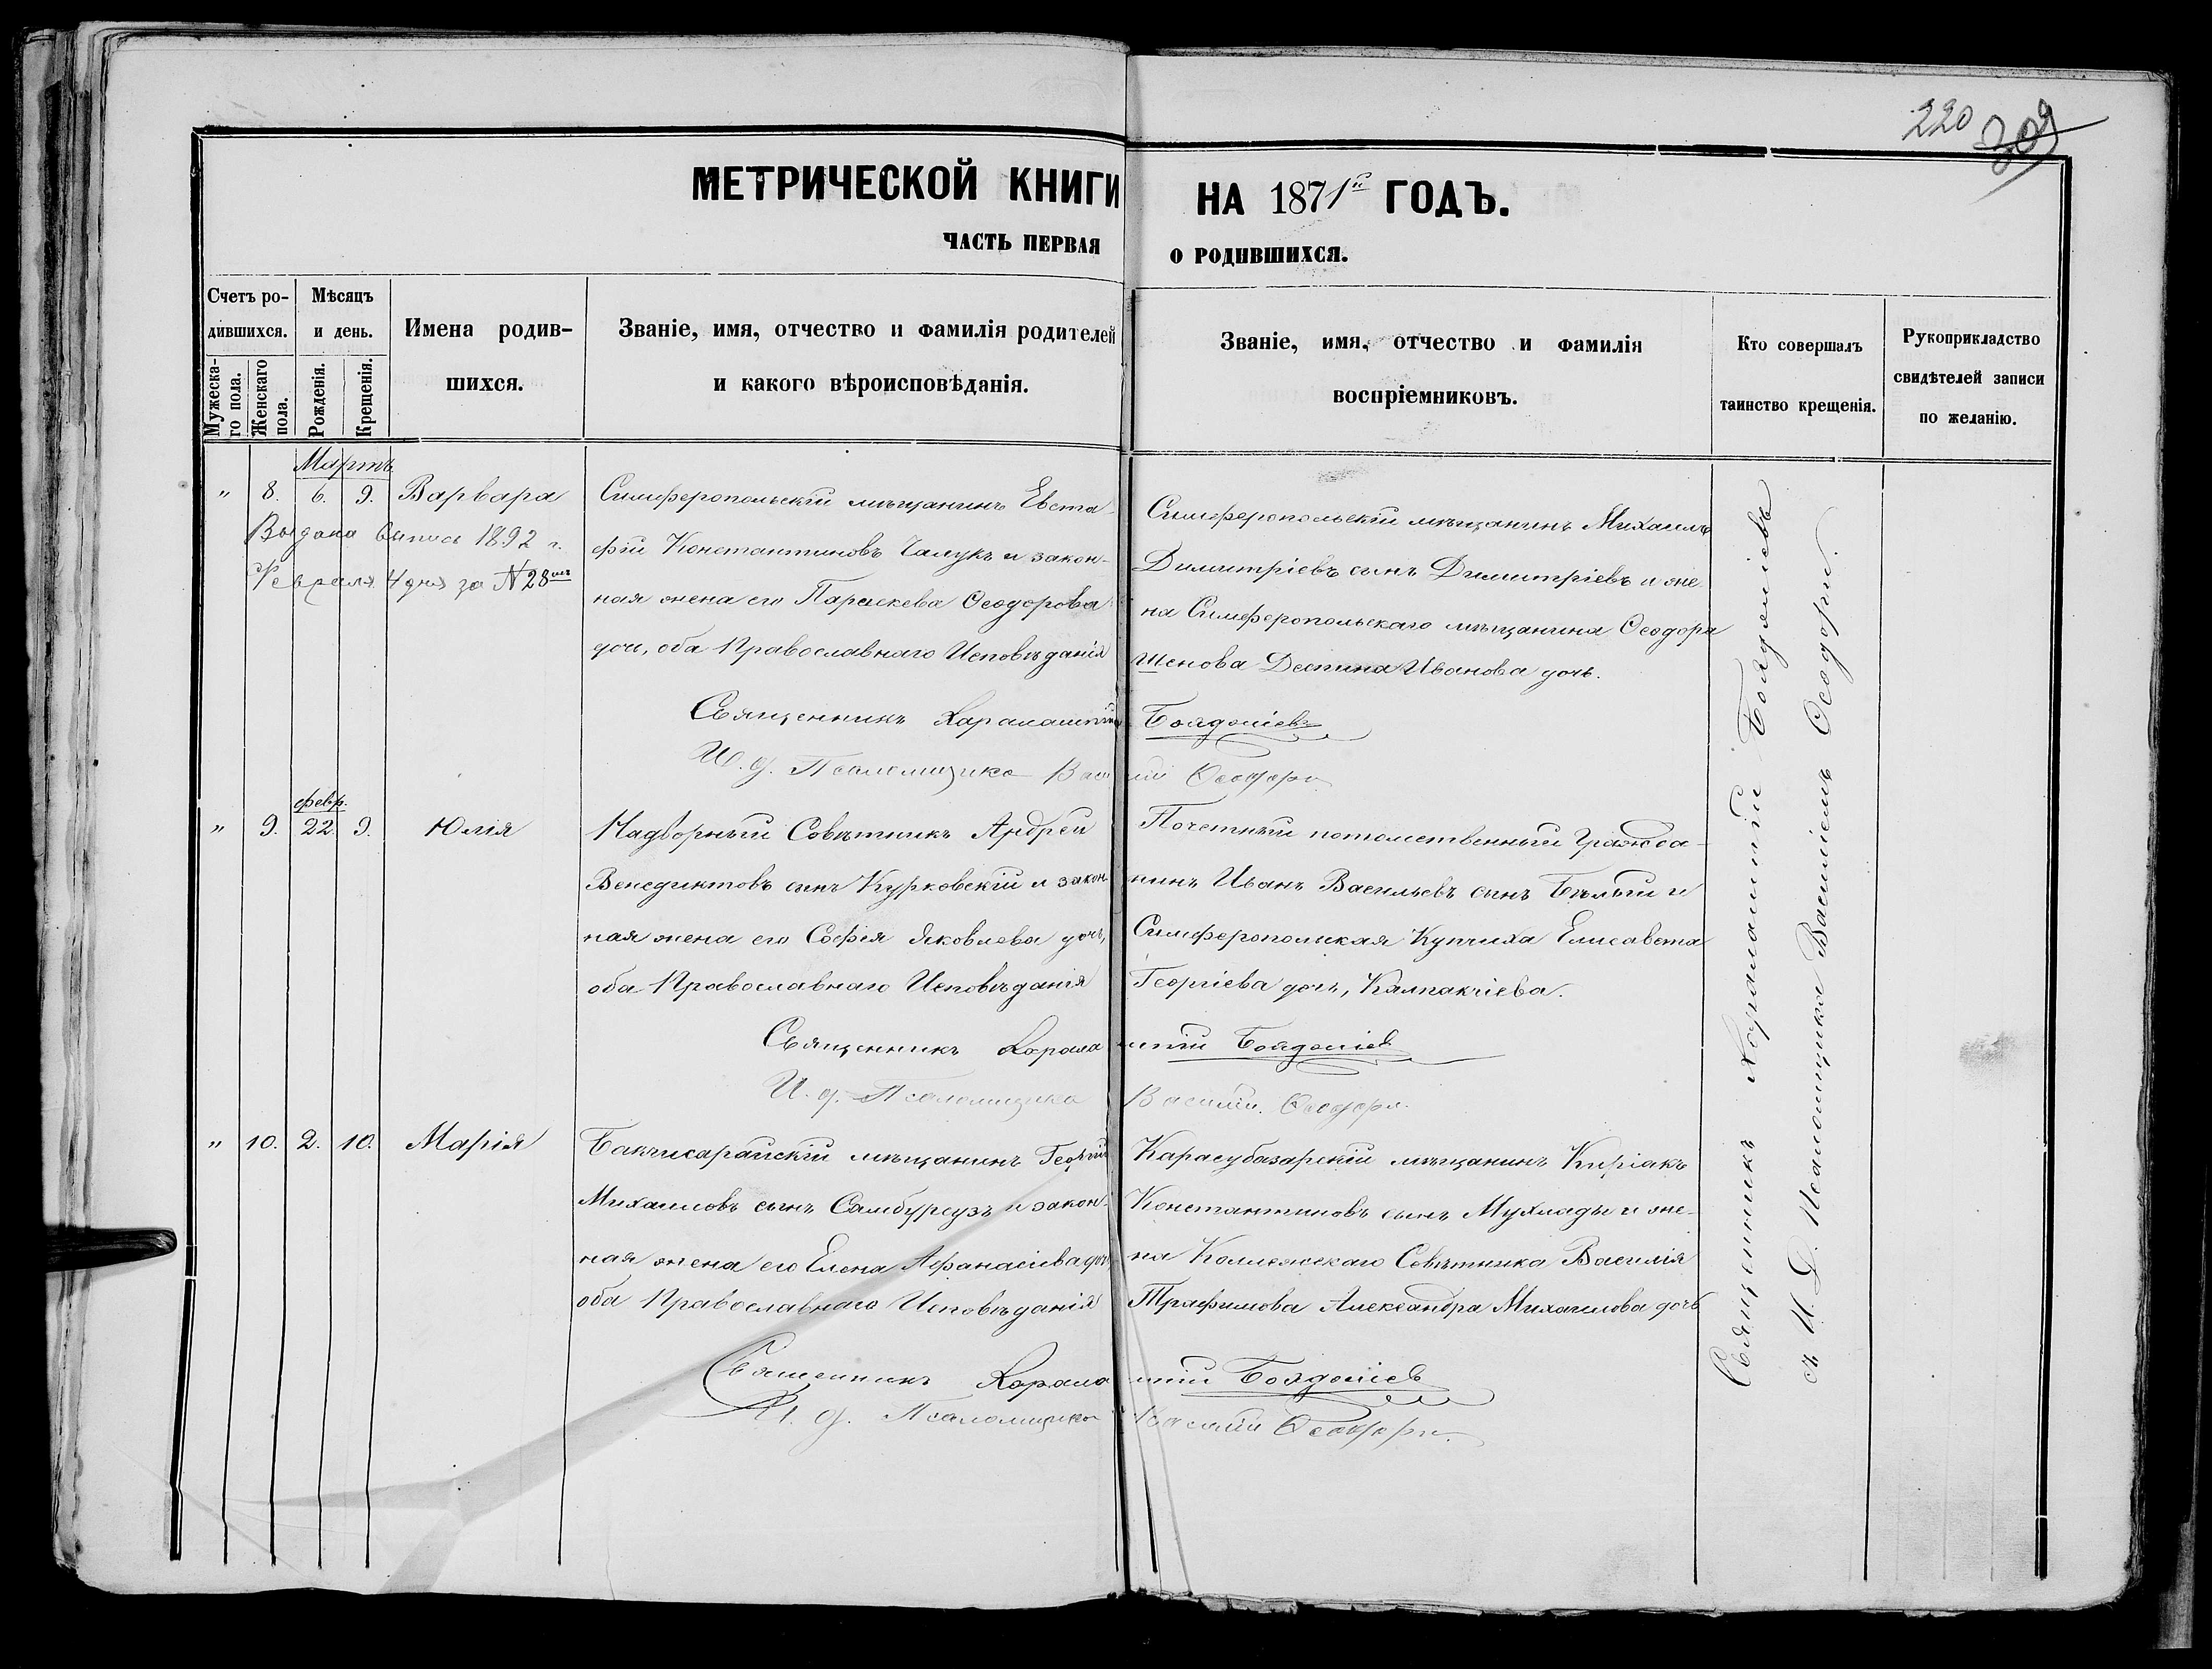 220 309
МЕТРИЧЕСКОЙ КНИГИ НА 1871й ГОДЪ.
ЧАСТЬ ПЕРВАЯ О РОДИВШИХСЯ.
Счетъ ро-
дившихся.
Мужеска-
го пола.
Женскаго
пола.
Мѣсяцъ
и день.
Рожденія.
Крещенія.
Имена родив-
шихся.
Званіе, имя, отчество и фамилія родителей
и какого вѣроисповѣданія.
Званіе, имя, отчество и фамилія
воспріемниковъ.
Кто совершалъ
таинство крещенія.
Рукоприкладство
свидѣтелей записи
по желанію.
Мартъ
" 8. 6. 9. Варвара
Выдана выпись 1892 г.
Февраля 4 дня за №28
Симферопольскій мѣщанинъ Евста-
фій Константиновъ Чалукъ и закон-
ная жена его Параскева Ѳеодорова
дочь, оба Православнаго Исповѣданія
Симферопольскій мѣщанинъ Михаилъ
Димитріевъ сынъ Димитріевъ и же-
на Симферопольскаго мѣщанина Ѳеодора
Шенова Деспина Иванова дочь.
Священникъ Харалампій Бояджіевъ
И. д. Псаломщика Василій Ѳеодори
февр.
" 9. 22. 9. Юлія
Надворный Совѣтникъ Андрей
Венедиктовъ сынъ Курковскій и закон-
ная жена его Софія Яковлева дочь,
оба Православнаго Исповѣданія
Почетный потомственный Гражда-
нинъ Иванъ Васильевъ сынъ Бѣлый и
Симферопольская Купчиха Елисавета
Георгіева дочь, Калпакчіева.
Священникъ Харалампій Бояджіев
И. д. Псаломщика Василій Ѳеодори.
" 10. 2. 10. Марія
Бакчисарайскій мѣщанинъ Георгій
Михаиловъ сынъ Самбурсузъ и закон-
ная жена его Елена Афанасіева дочь
оба Православнаго Исповѣданія
Карасубазарскій мѣщанинъ Киріакъ
Константиновъ сынъ Мухлады и же-
на Коллежскаго Совѣтника Василія
Трафимова Александра Михаилова дочь
Священникъ Харалампій Бояджіев
И. д. Псаломщика Василій Ѳеодори.
Священникъ Харалампій Бояджіевъ
съ И. Д. Псаломщика Василіемъ Ѳеодори.